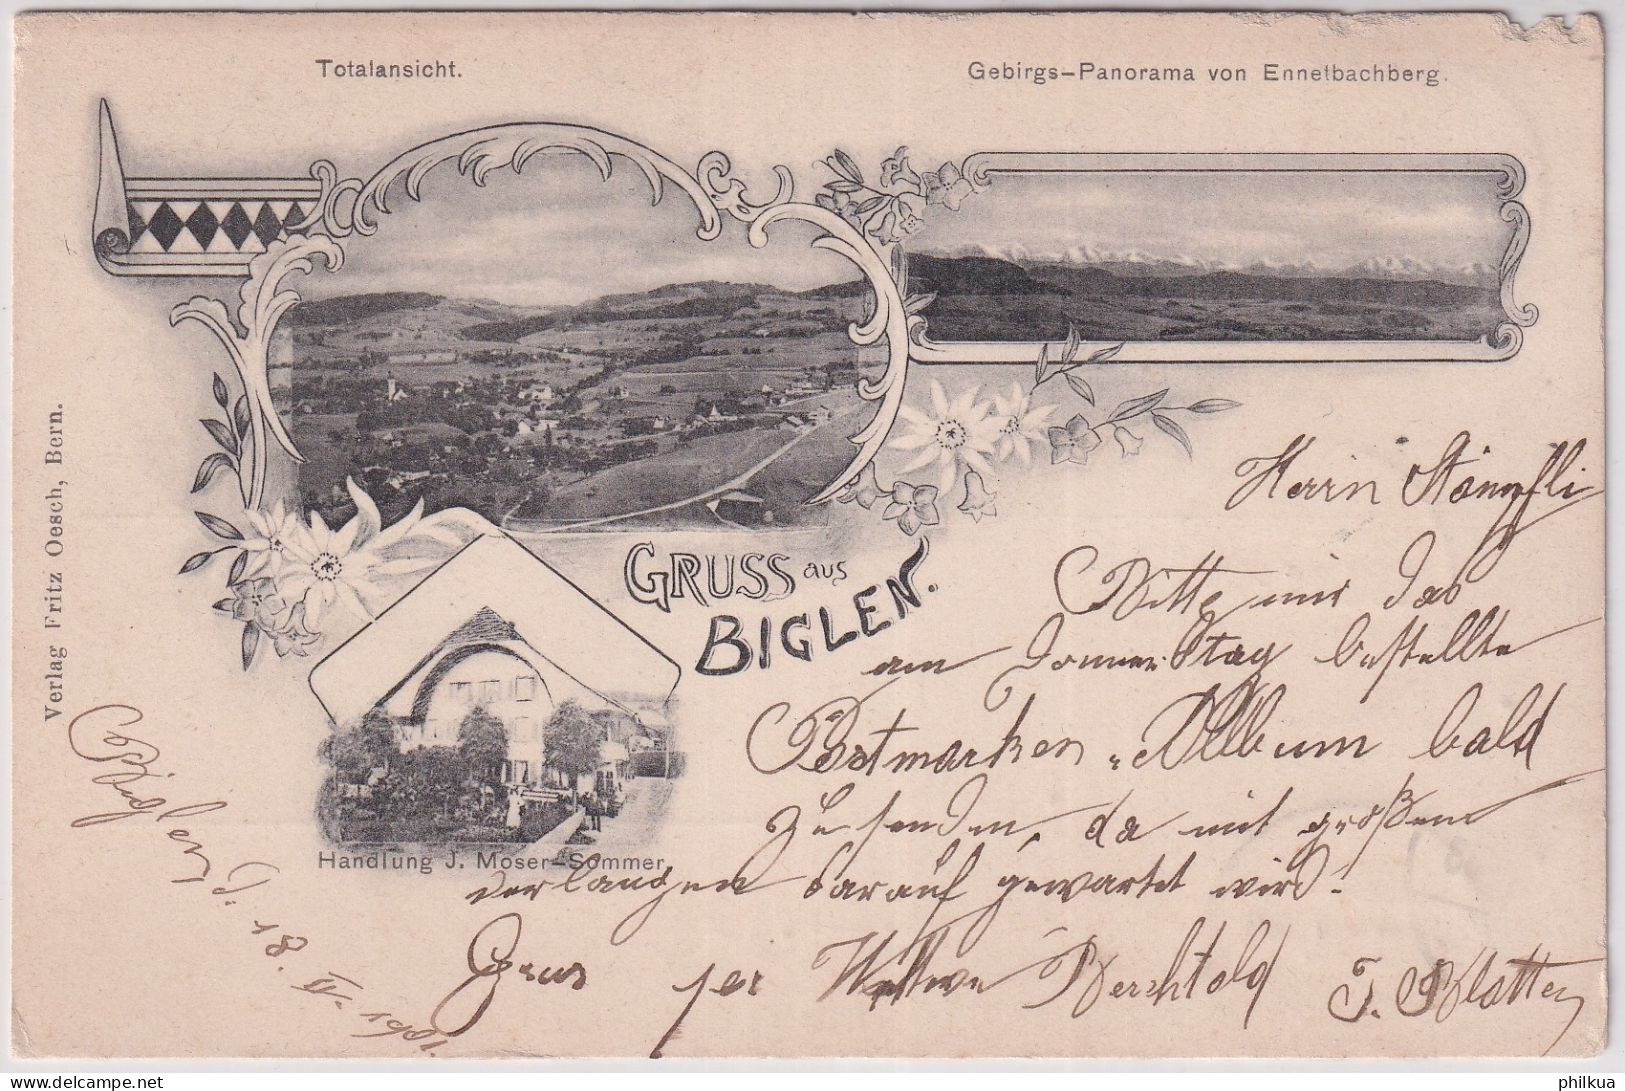 Totalansicht.
Gebirgs-Panorama von Ennetbachberg.
Verlag Fritz Oesch, Bern.
GRUSS aus
BIGLEN.
Handlung J. Moser-Sommer
Herrn Stämpfli
Bitte mir das
am Donnerstag bestellte
Postmarken-Album bald
zu senden, da mit großem
verlangen darauf gewartet wird!
Grus per Wittwe Berchtold
Biglen d. 18. IV. 1901.
philkua